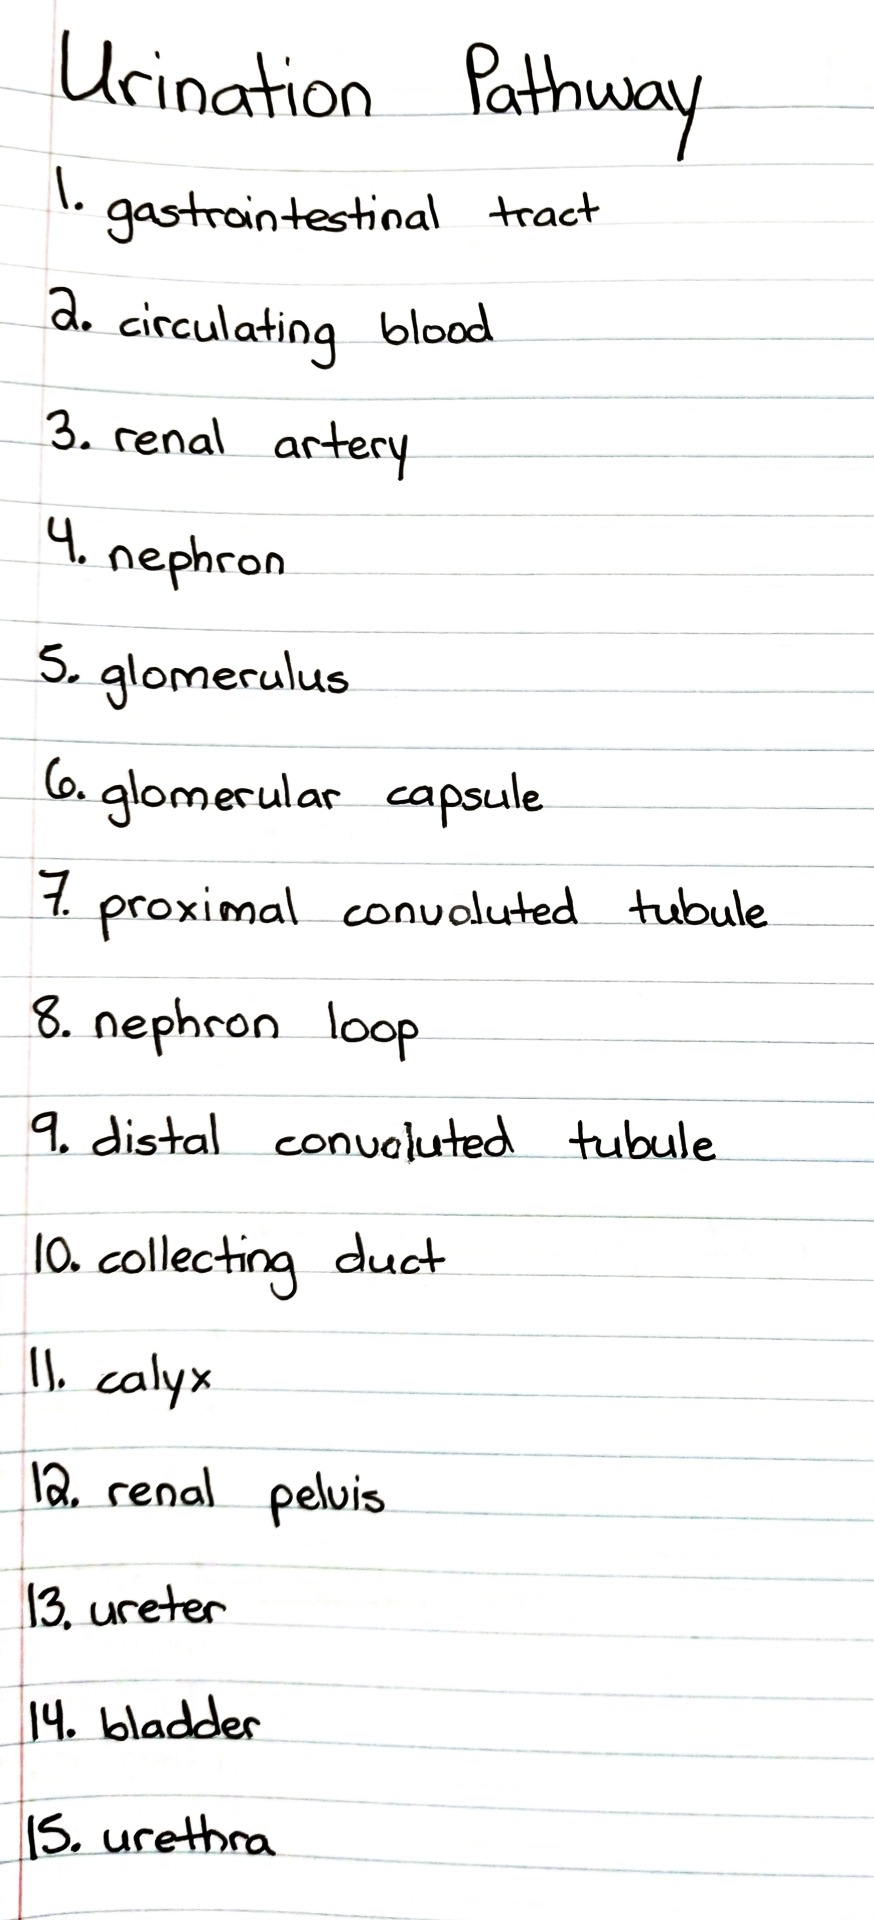 Urination Pathway
1. gastrointestinal tract
2. circulating blood
3. renal artery
4. nephron
5. glomerulus
6. glomerular capsule
7. proximal convoluted tubule
8. nephron loop
9. distal convoluted tubule
10. collecting duct
11. calyx
12. renal pelvis
13. ureter
14. bladder
15. urethra